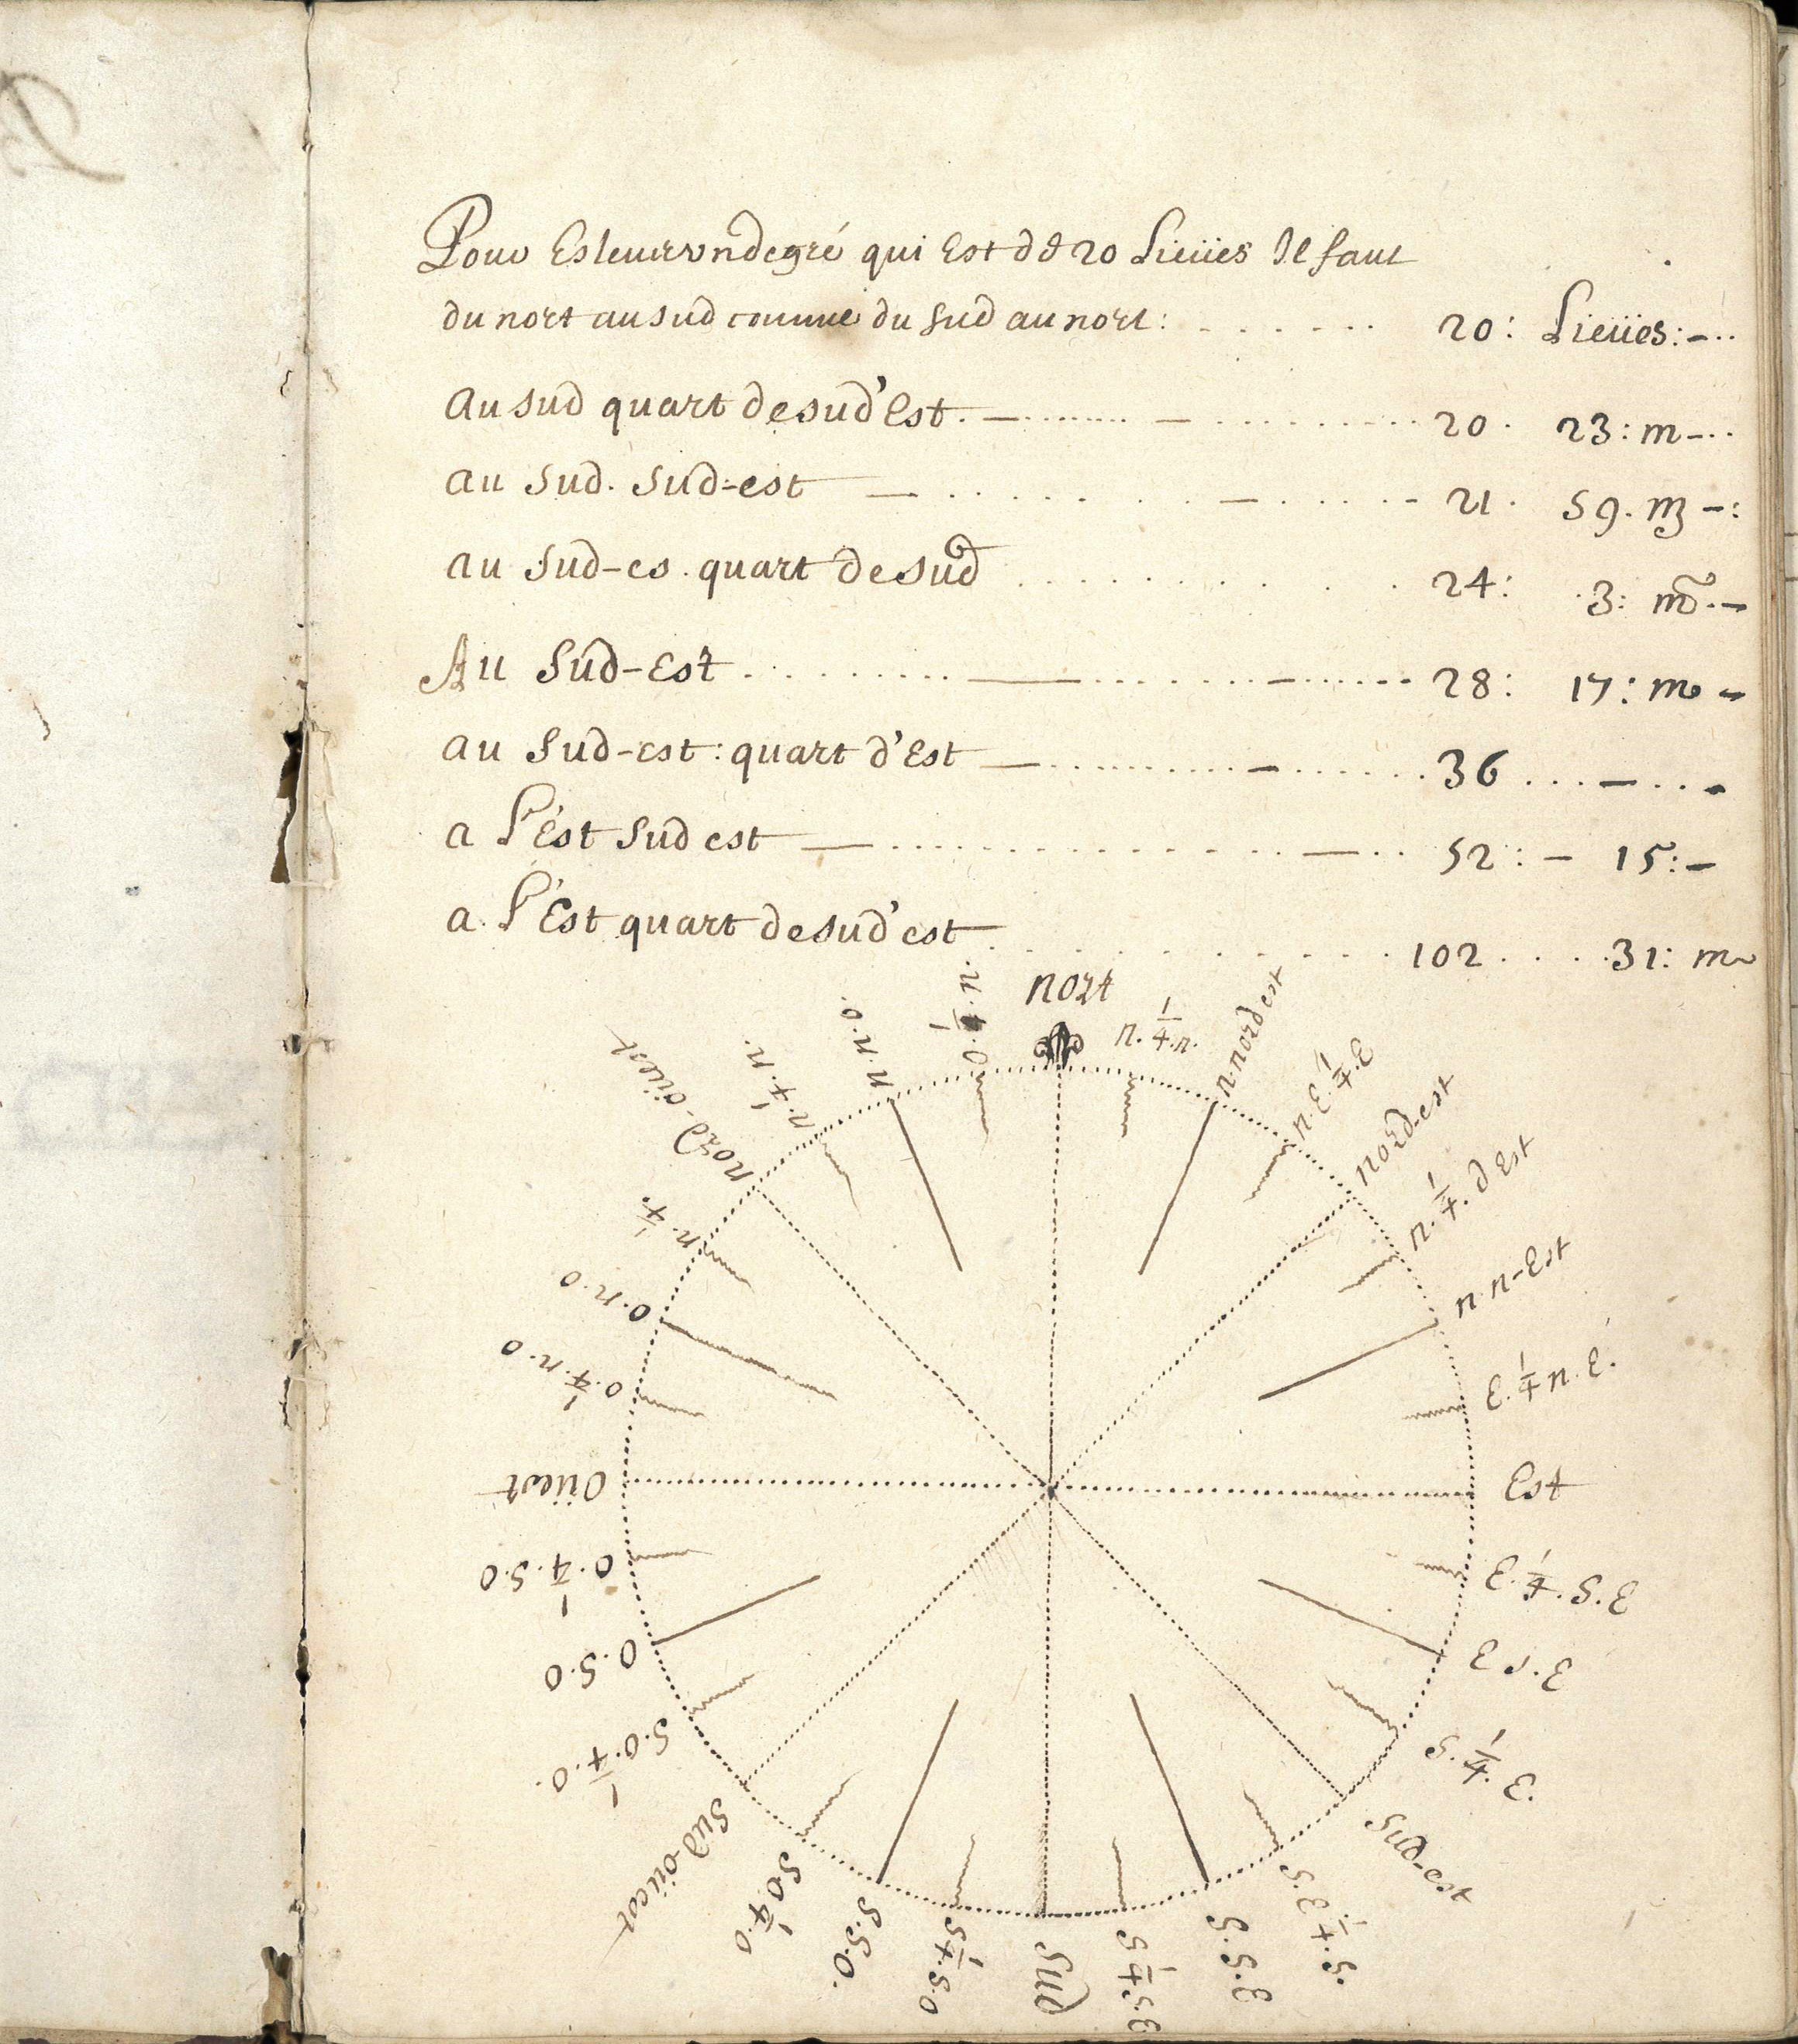 Pour Esleuer vn degré qui Est dd 20 Lieües Il faut
du nort au sud comme du sud au nort: 20: Lieües:
Au sud quart de sud'Est. 20. 23: m
au sud. sud-est 21. 59. m
au sud-es. quart de sud 24: 3: m
Au sud-Est 28: 17: m
au sud-est: quart d'Est 36
a l'Est sud est 52: 15:
a. l'Est quart de sud'est 102 31: m
nort
n. 1/4. n.
n. nord est
n. E. 1/4. E
nord-est
n. 1/4. d Est
n. n-Est
E. 1/4 n. E.
Est
E. 1/4. S. E
E s. E
S. 1/4. E.
Sud-est
S. E 1/4. S.
S. S. E
S 1/4. S. E
Sud
S 1/4. S. O
S. S. O.
S O 1/4. O
Sud-oüest
S. O. 1/4. O.
O. S. O
O. 1/4. S. O
Oüest
O. 1/4. n. O
O. n. O
n. 1/4.
nord-oüest
n. 1/4. n.
n. n. o.
O. 1/4. n.